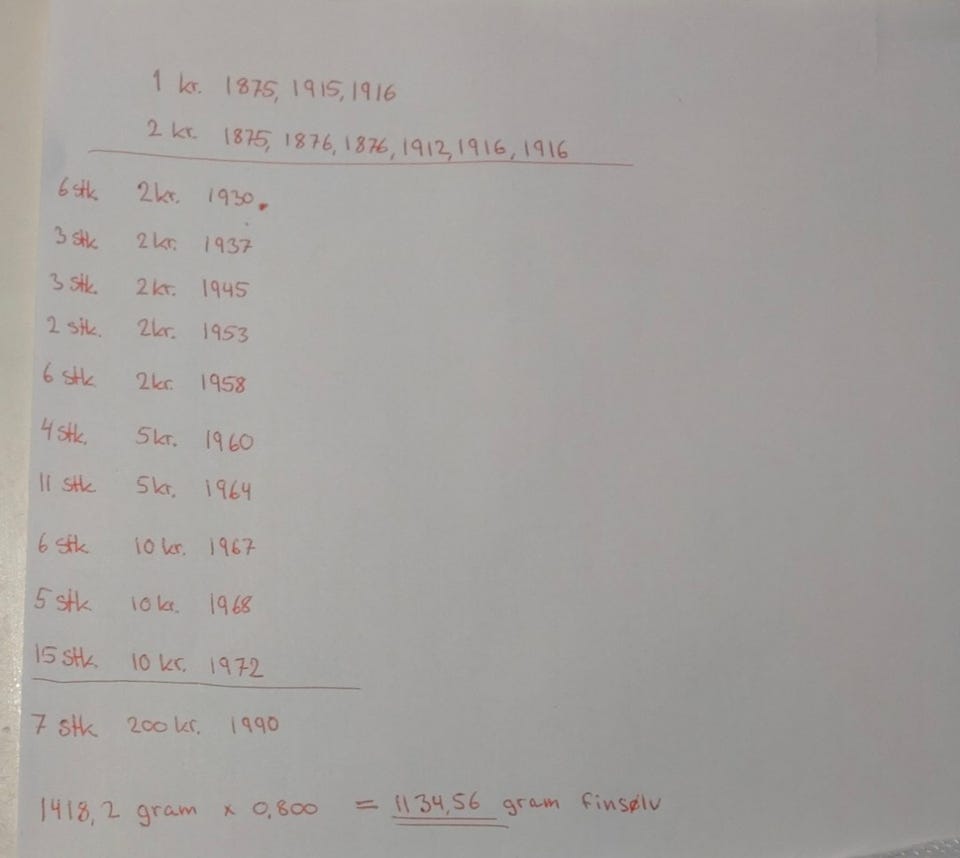 1 kr. 1875, 1915, 1916
2 kr. 1875, 1876, 1876, 1912, 1916, 1916
6 stk. 2 kr. 1930.
3 stk. 2 kr. 1937
3 stk. 2 kr. 1945
2 stk. 2 kr. 1953
6 stk. 2 kr. 1958
4 stk. 5 kr. 1960
11 stk 5 kr. 1964
6 stk 10 kr. 1967
5 stk 10 kr. 1968
15 stk. 10 kr. 1972
7 stk 200 kr. 1990
1418,2 gram x 0,800 = 1134,56 gram finsølv